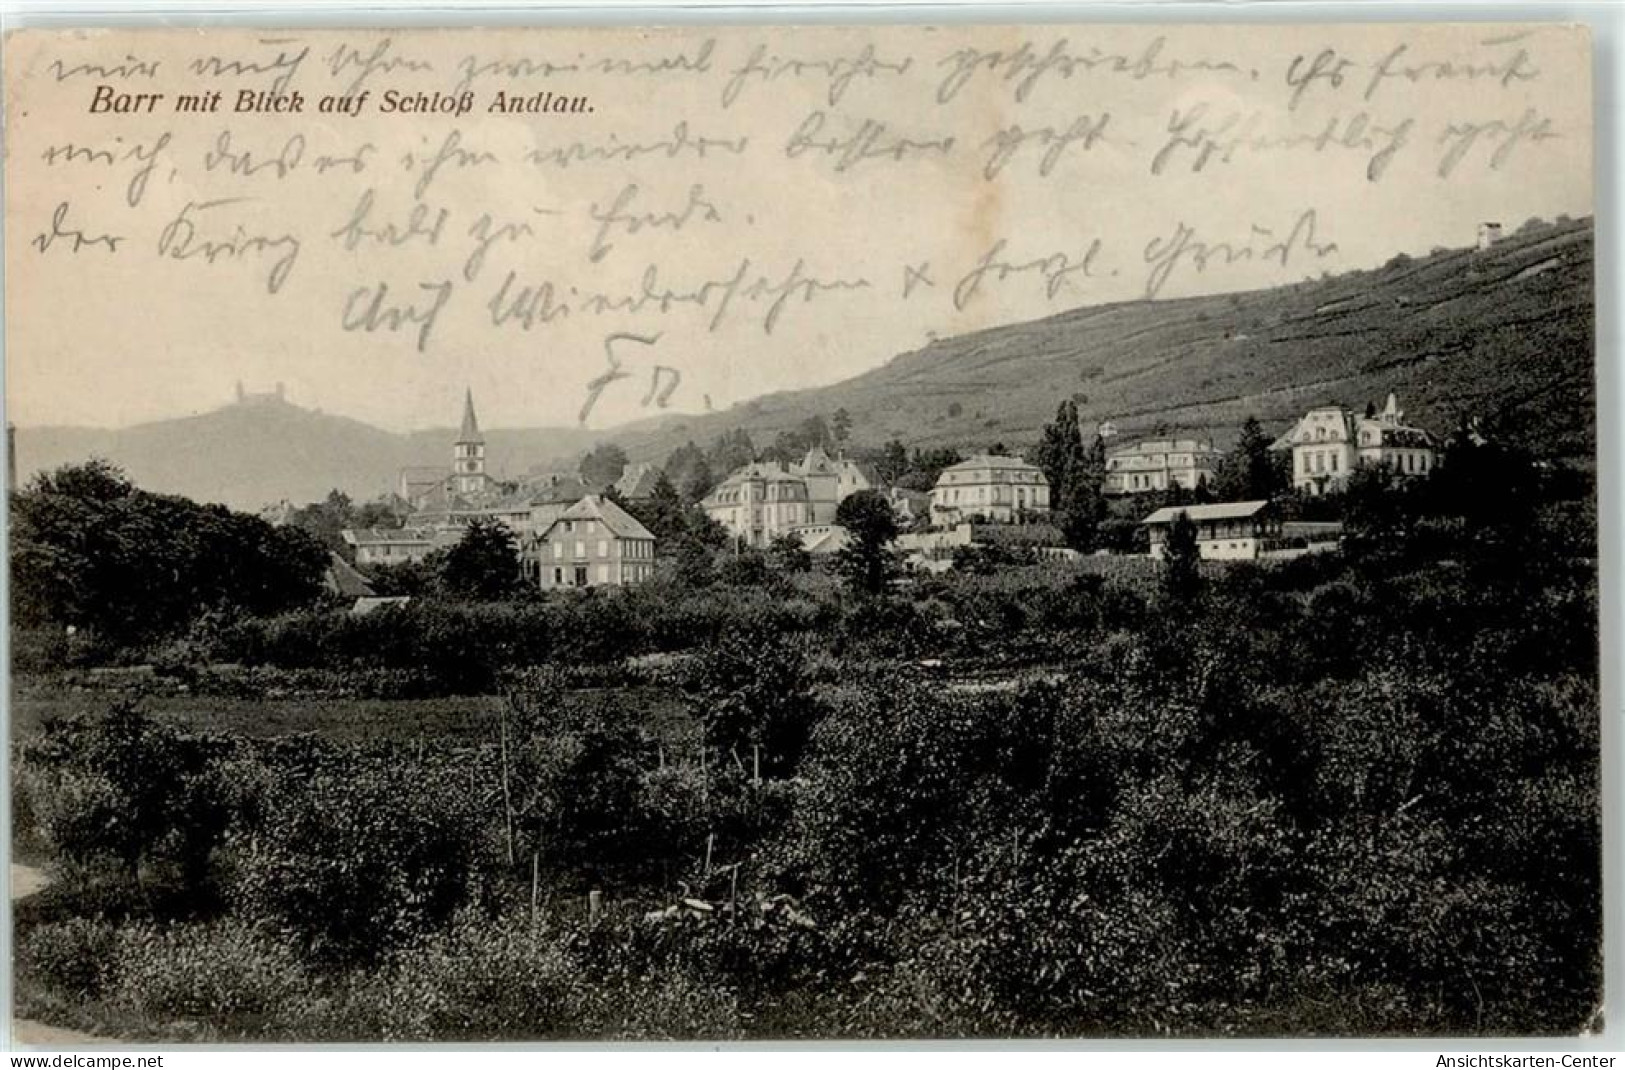 mir auch schon zweimal hierher geschrieben. Es freut
Barr mit Blick auf Schloß Andlau.
mich, daß es ihm wieder besser geht. Hoffentlich geht
der Krieg bald zu Ende.
Auf Wiedersehen & herzl. Grüße
Fr.
delcampe.net
Ansichtskarten-Center